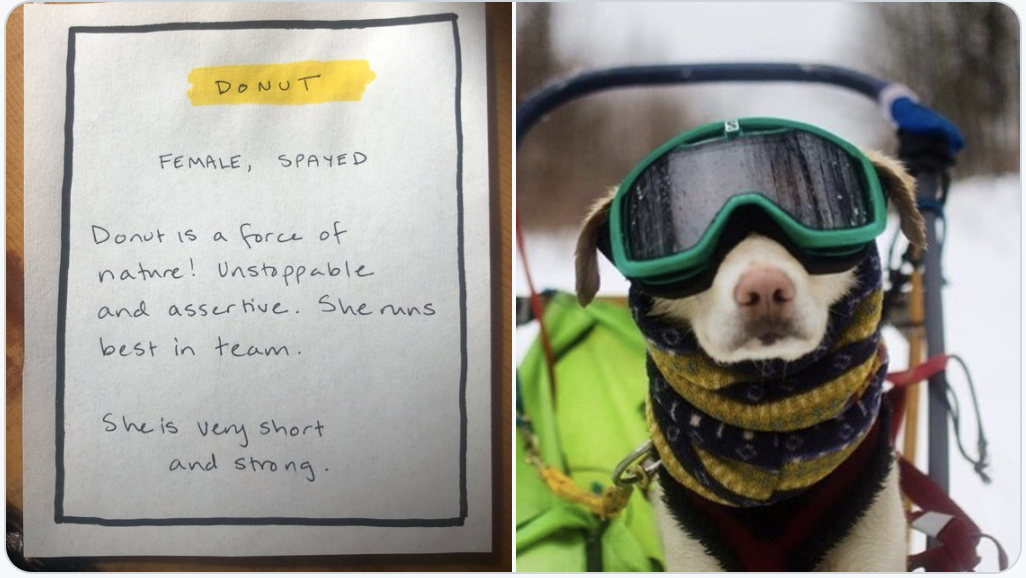 DONUT
FEMALE, SPAYED
Donut is a force of
nature! Unstoppable
and assertive. She runs
best in team.
She is very short
and strong.
S